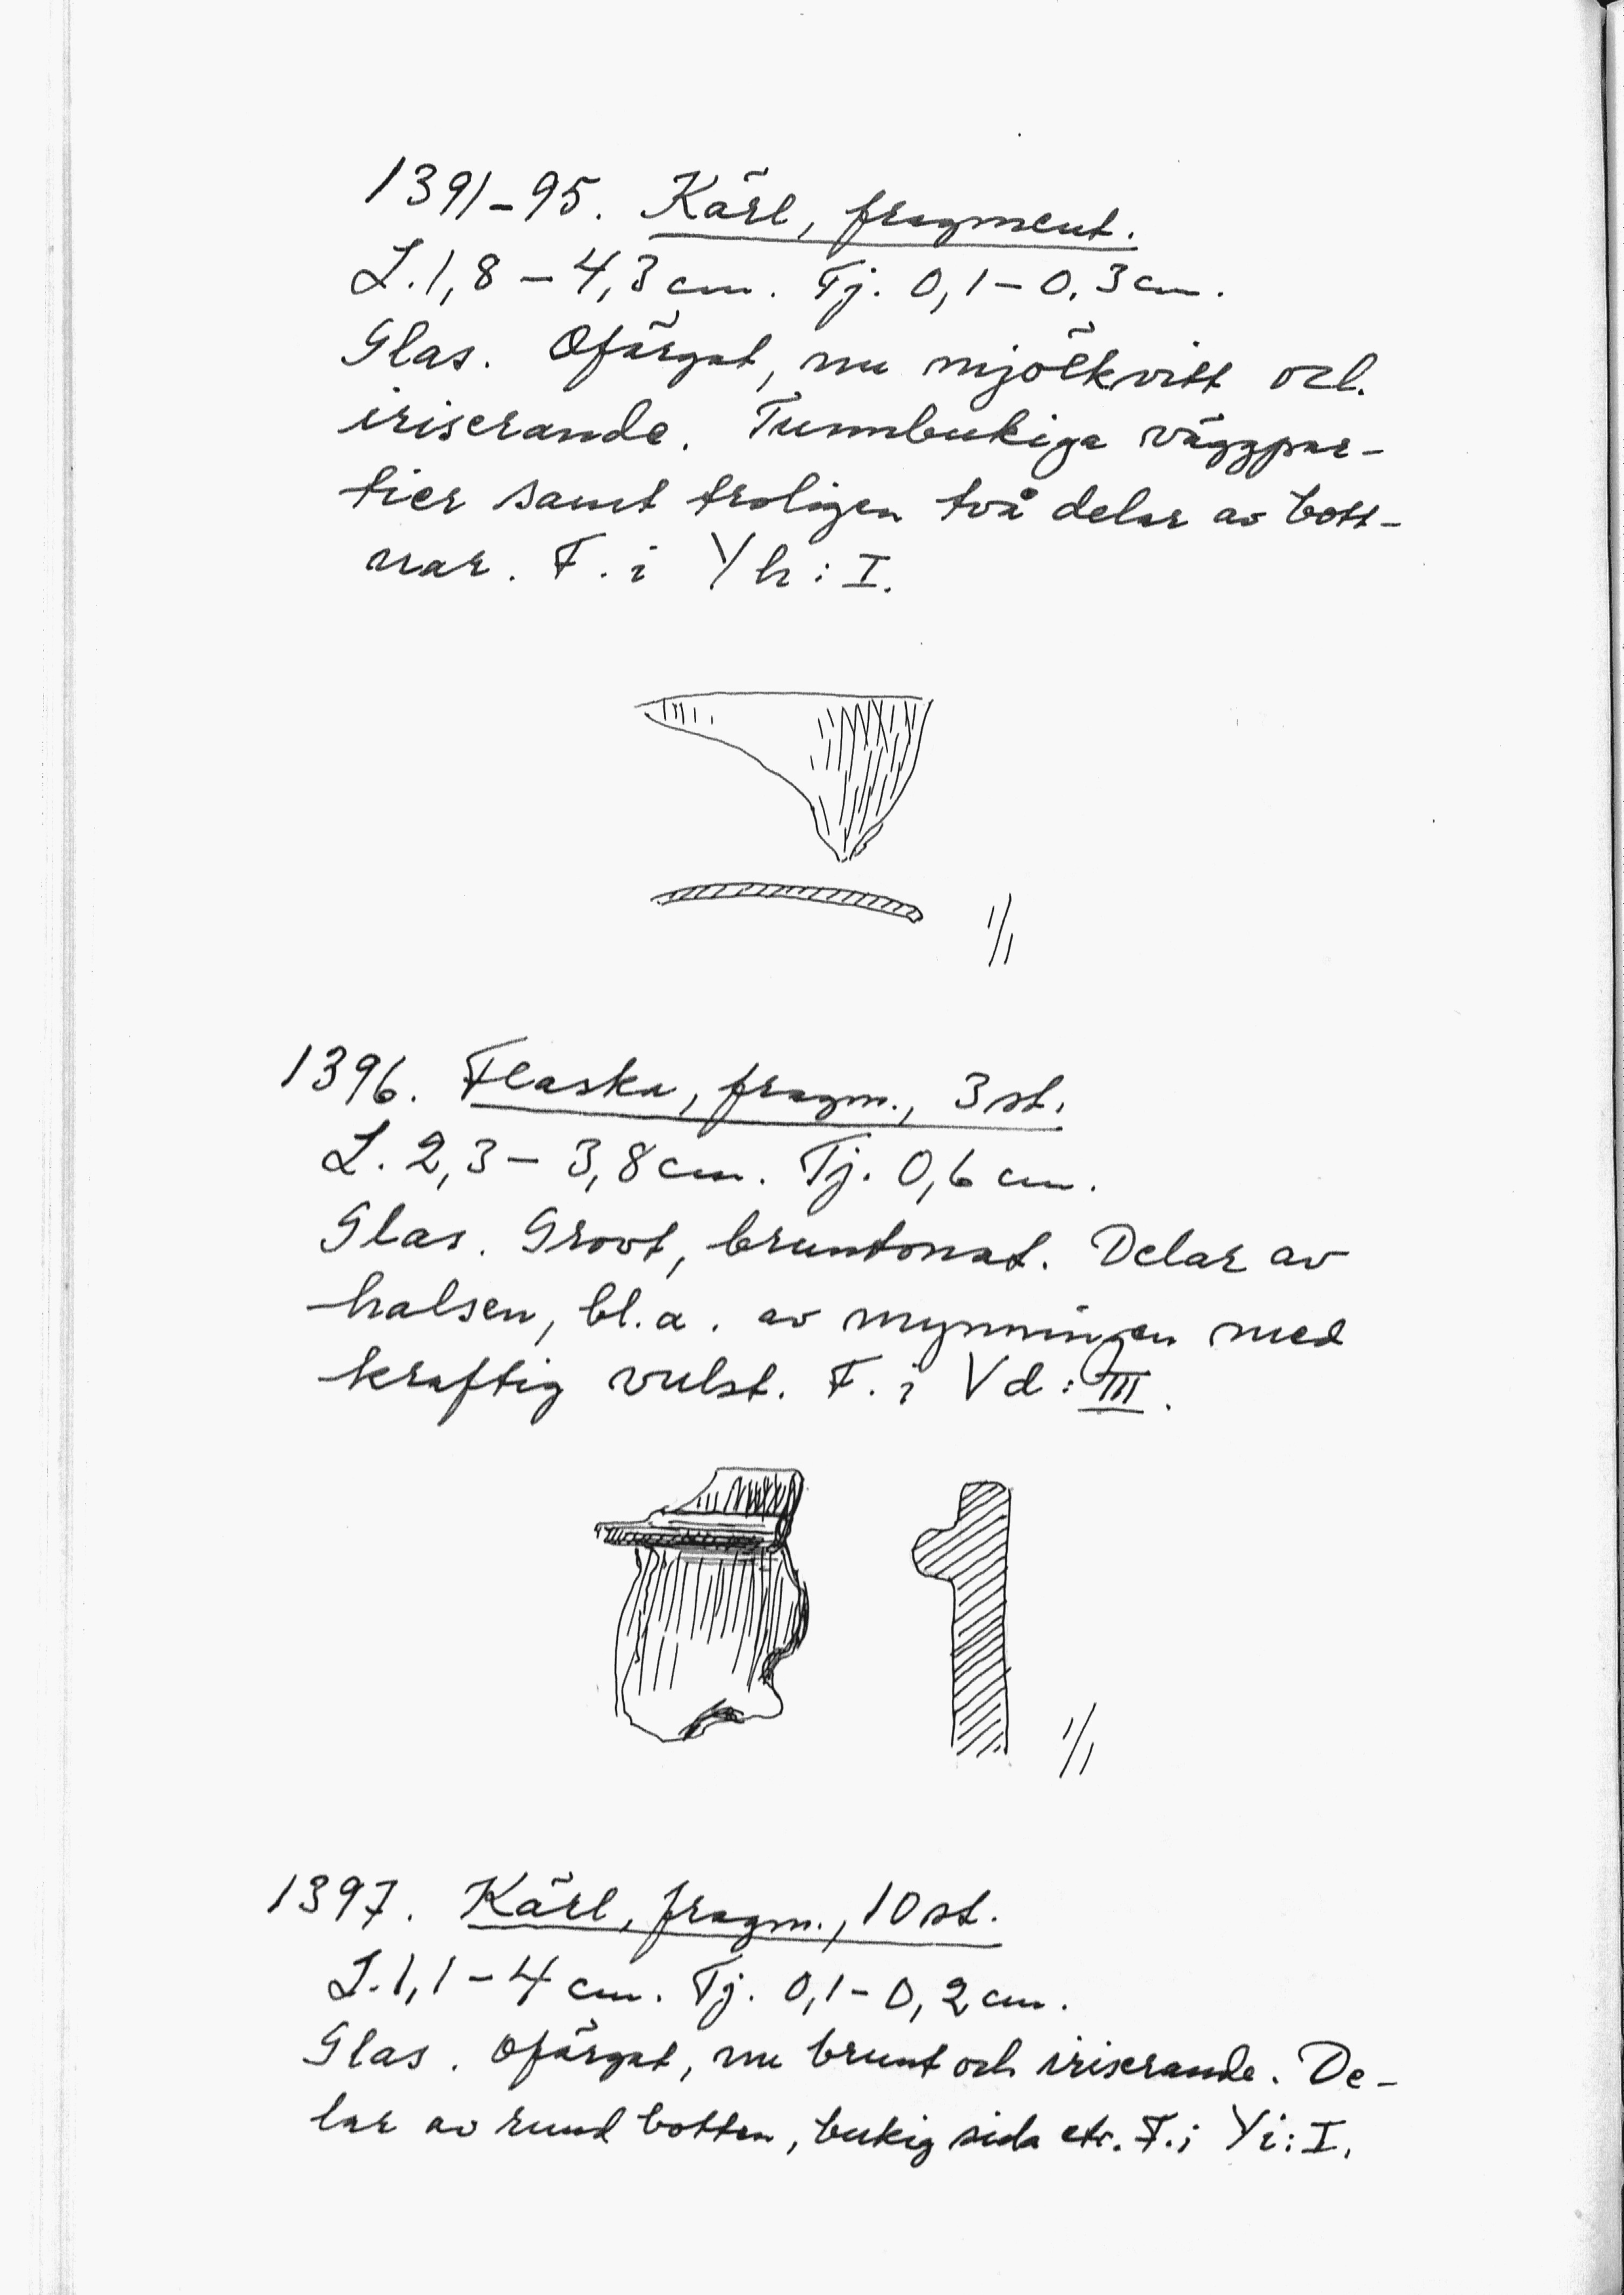 1391-95. Kärl, fragment.
L. 1,8 - 4,3 cm. Tj. 0,1 - 0,3 cm.
Glas. Ofärgat, nu mjölkvitt och
iriserande. Tunnbukiga väggpar-
tier samt troligen två delar av bott-
nar. F. i Yh: I.
1/1
1396. Flaska, fragm., 3 st.
L. 2,3 - 3,8 cm. Tj. 0,6 cm.
Glas. Grovt, bruntonat. Delar av
halsen, bl.a. av mynningen med
kraftig vulst. F. i Vd: III.
1/1
1397. Kärl, fragm., 10 st.
L. 1,1 - 4 cm. Tj. 0,1 - 0,2 cm.
Glas. Ofärgat, nu brunt och iriserande. De-
lar av rund botten, bukig sida etc. F. i Yi: I.